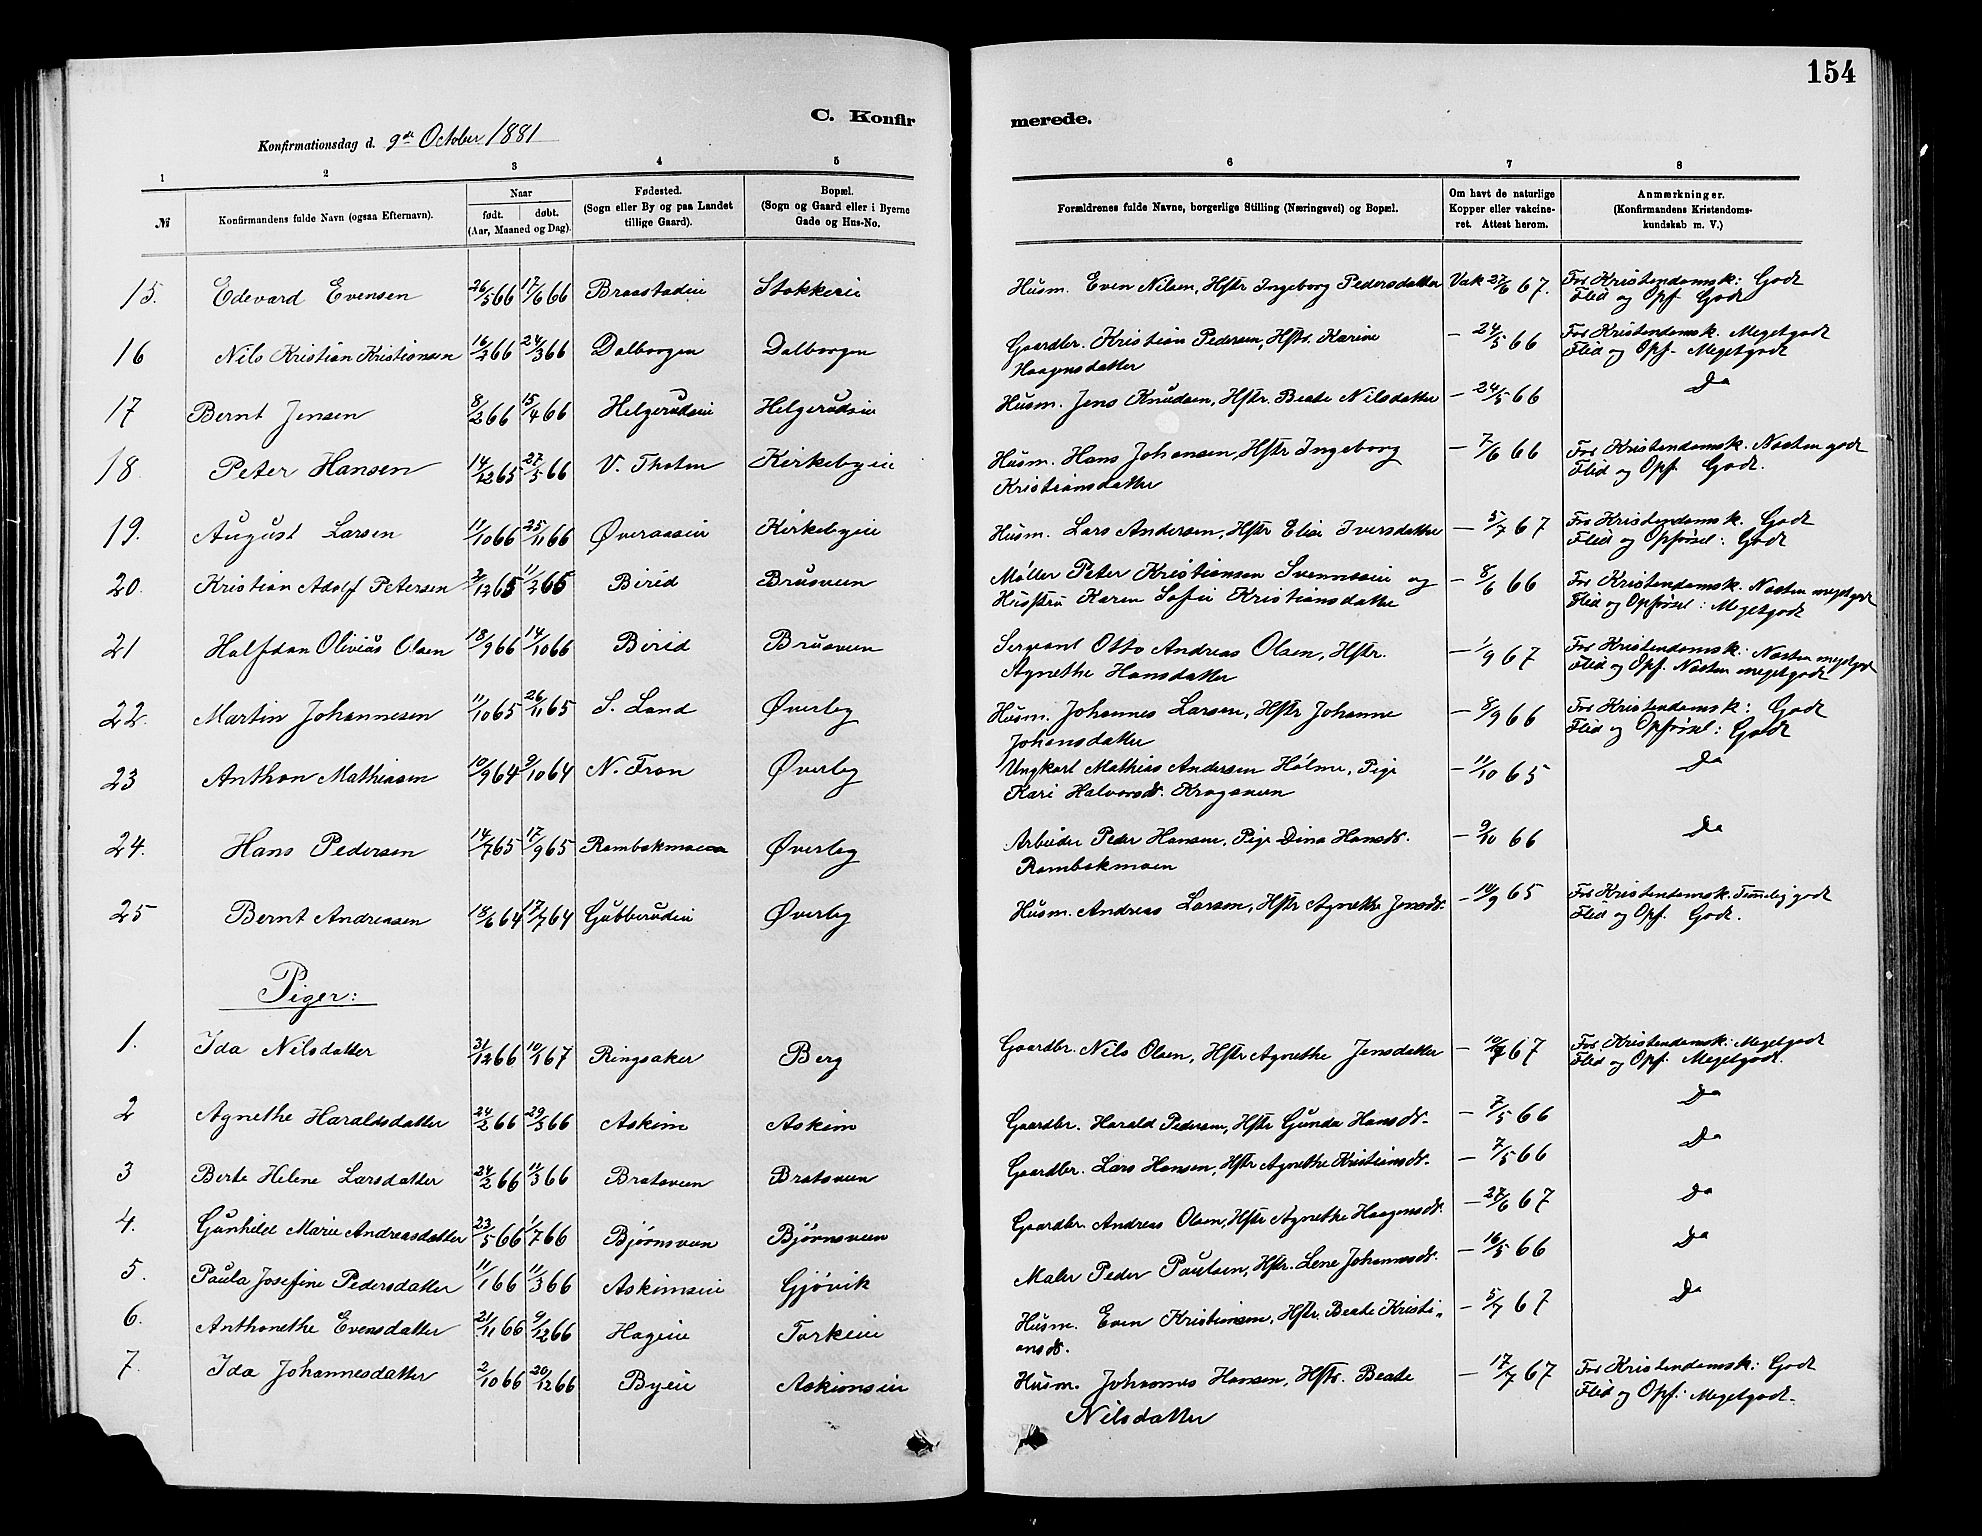 154
C. Konfirmerede.
Konfirmationsdag d. 9de October 1881
1 2 3 4 5 6 7 8
№ Konfirmandens fulde Navn (ogsaa Efternavn). Naar født. døbt. (Aar, Maaned og Dag). Fødested. (Sogn eller By og paa Landet tillige Gaard). Bopæl. (Sogn og Gaard eller i Byerne Gade og Hus-No. Forældrenes fulde Navne, borgerlige Stilling (Næringsvei) og Bopæl. Om havt de naturlige Kopper eller vakcineret. Attest herom. Anmærkninger. (Konfirmandens Kristendomskundskab m. V.)
15. Edevard Evensen 26/5 66 17/6 66 Braastadeie Stokkeeie Husm. Even Nilsen, Hstr Ingeborg Pedersdatter Vak 27/6 67. For Kristendomsk: Godt
Flid og Opf Godt
16 Nils Kristian Kristiansen 16/2 66 24/3 66 Dalborgen Dalborgen Gaardbr. Kristian Pedersen, Hstr. Karine — 24/5 66 For Kristendomsk. Megetgodt
Haagensdatter Flid og Opf- Megetgodt
17 Bernt Jensen 8/2 66 15/4 66 Helgerudeie Helgerudeie Husm. Jens Knudsen, Hstr. Beate Nilsdatter — 24/5 66 Do
18. Peter Hansen 14/12 65 27/5 66 V. Thoten Kirkebyeie Husm. Hans Johansen, Hstr Ingeborg — 7/6 66 For Kristendomsk. Næsten godt
Kristiansdatter Flid og Opf. Godt.
19. August Larsen 11/10 66 25/11 66 Øveraaseie Kirkebyeie Husm. Lars Andersen, Hstr Elise Iversdatter — 5/7 67 For Kristendomsk. Godt
Flid og Opførsel: Godt
20. Kristian Adolf Petersen /12 65 11/2 65 Birid Brusveen Møller Peter Kristiansen Svennæseie og — 8/6 66 For Kristendomsk. Næsten megetgodt
Hustru Karen Sofie Kristiansdatter Flid og Opførsel: Megetgodt
21 Halfdan Olivius Olsen 18/9 66 14/10 66 Birid Brusveen Sergeant Otto Andreas Olsen, Hstr. — 1/9 67 For Kristendomsk: Næsten megetgodt
Agnethe Hansdatter Flid og Opf. Næsten megetgodt
22. Martin Johannesen 11/10 65 26/11 65 S. Land Øverby Husm. Johannes Larsen, Hstr Johanne — 8/9 66 For Kristendomsk: Godt
Johansdatter Flid og Opførsel: Godt
23 Anthon Mathiasen 10/9 64 9/10 64 N. Fron Øverby Ungkarl Mathias Andersen Holme, Pige — 11/10 65 Do
Kari Halvorsdr. Krogsveen
24. Hans Pedersen 14/7 65 17/9 65 Rambekmoen Øverby Arbeider Peder Hansen, Pige Dina Hansdr. — 9/10 66 Do
Rambekmoen
25 Bernt Andreassen 18/6 64 17/7 64 Gubberudeie Øverby Husm. Andreas Larsen, Hstr Agnethe Jensdr. — 14/9 65 For Kristendomsk. Temmelig godt
Flid og Opf. Godt.
Piger:
1. Ida Nilsdatter 31/12 66 10/1 67 Ringsaker Berg Gaardbr. Nils Olsen, Hstr Agnethe Jensdatter — 10/9 67 For Kristendomsk: Megetgodt
Flid og Opf. Megetgodt.
2 Agnethe Haraldsdatter 24/2 66 29/3 66 Askim Askim Gaardbr. Harald Pedersen, Hstr Gunda Hansdr. — 7/5 66 Do
3 Berte Helene Larsdatter 24/2 66 11/3 66 Bratsveen Bratsveen Gaardbr. Lars Hansen, Hstr Agnethe Kristiansdr. — 7/5 66 Do
4. Gunhild Marie Andreasdatter 23/5 66 1/7 66 Bjørnsveen Bjørnsveen Gaardbr. Andreas Olsen, Hstr Agnethe Haagensdr. — 27/6 67 Do
5. Paula Josefine Pedersdatter 11/1 66 11/3 66 Askimseie Gjøvik Maler Peder Paulsen, Hstr. Lene Johannesdr. — 16/5 66 Do
6. Anthonethe Evensdatter 21/11 66 9/12 66 Hageeie Torkeeie Husm. Even Kristiansen, Hstr. Beate Kristi- — 5/7 67 Do
ansdr.
7. Ida Johannesdatter 2/10 66 20/12 66 Byeie Askimseie Husm. Johannes Hansen, Hstr. Beate — 17/7 67 For Kristendomsk: Godt
Nilsdatter Flid og Opf: Megetgodt.